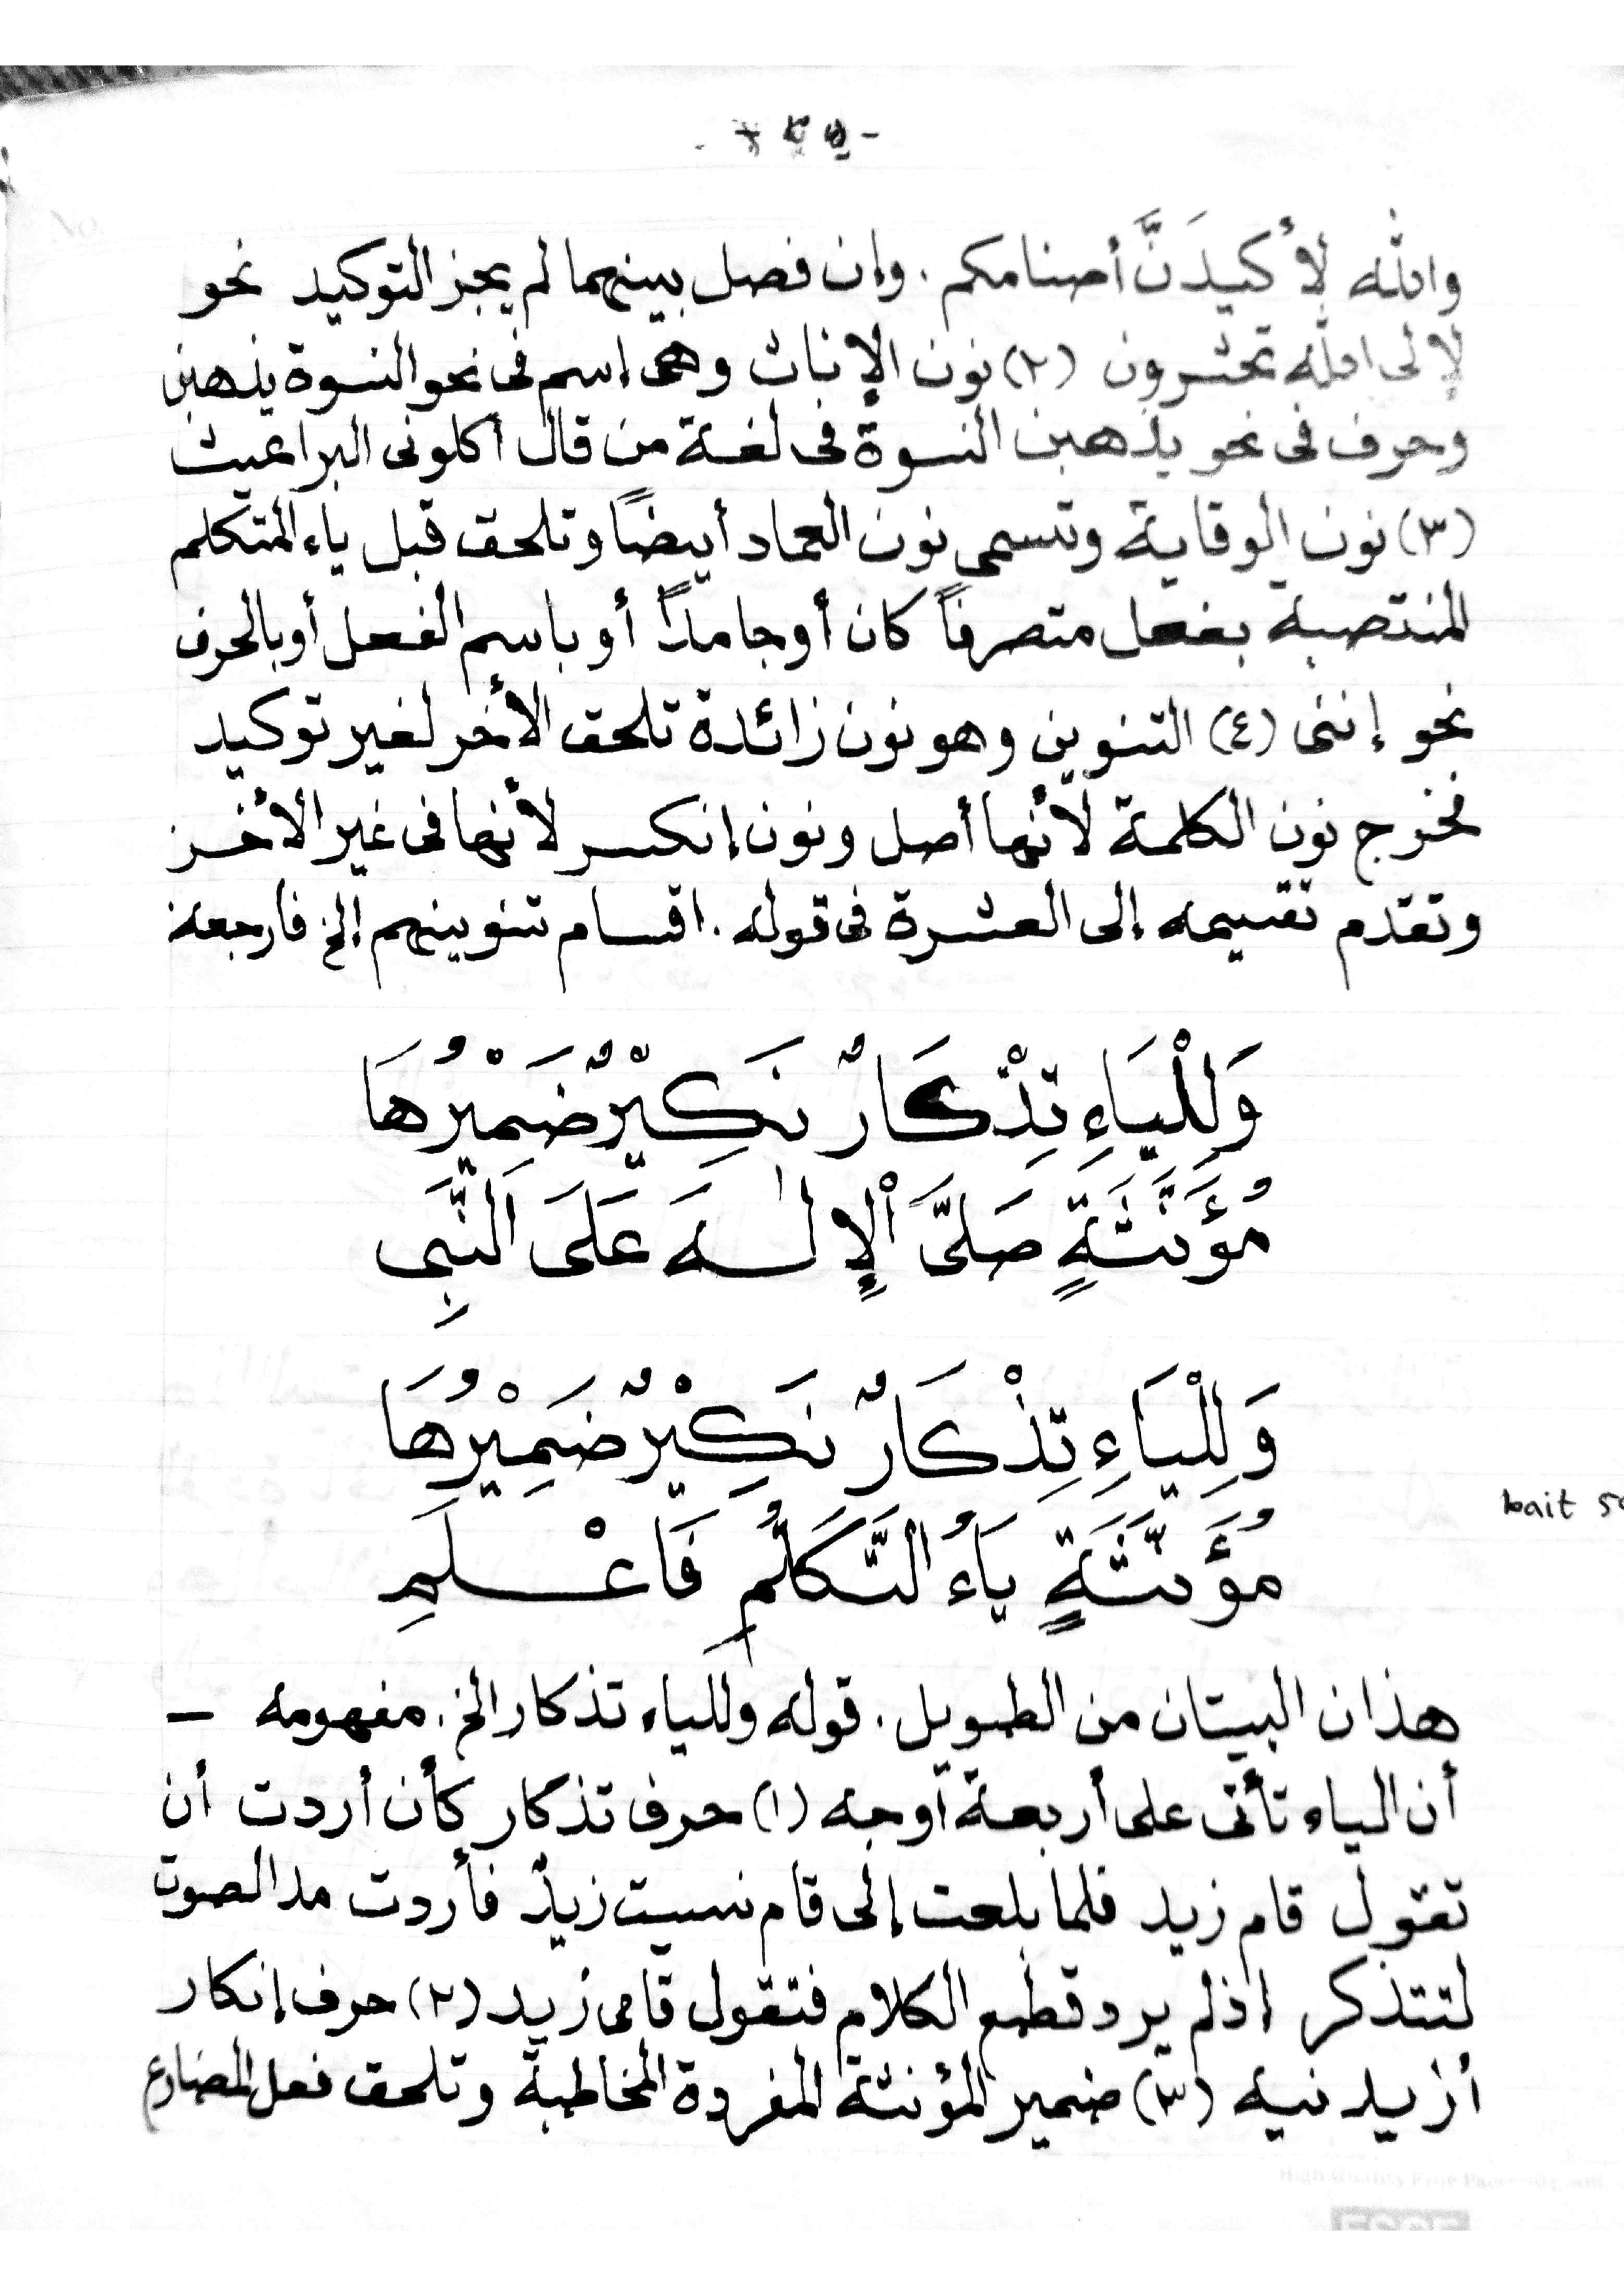 والله لأكيدَنَّ أصنامكم . وإن فصل بينهما لم يجز التوكيد نحو
لإلى الله تحشرون (٢) نون الإناث وهى إسم فى نحو النسوة يذهبن
وحرف فى نحو يذهبن النسوة فى لغة من قال أكلونى البراغيث
(٣) نون الوقاية وتسمى نون العماد أيضاً وتلحق قبل ياء المتكلم
المنتصبة بفعل متصرفاً كان أو جامداً أو باسم الفعل أو بالحرف
نحو إننى (٤) التنوين وهو نون زائدة تلحق الأخر لغير توكيد
فخرج نون الكلمة لأنها أصل ونون إنكسر لأنها فى غير الأخر
وتقدم تقسيمه إلى العشرة فى قوله . اقسام تنوينهم إلخ فارجعه
وَلِلْيَاءِ تِذْكَارٌ نَكِيْرٌ ضَمِيْرُهَا
مُؤَنَّثَةٍ صَلَّى اْلإِلٰهَ عَلَى النَّبِى
وَلِلْيَاءِ تِذْكَارٌ نَكِيْرٌ ضَمِيْرُهَا
bait
مُؤَنَّثَةٍ يَاءُ التَّكَلُّمِ فَاعْلَمِ
هذان البيتان من الطويل . قوله وللياء تذكار الخ . مفهومه –
أن الياء تأتى على أربعة أوجه (١) حرف تذكار كأن أردت أن
تقول قام زيد فلما بلعت إلى قام نسيت زيدٌ فأردت مد الصوت
لتتذكر إذ لم يرد قطع الكلام فتقول قامى زيد (٢) حرف إنكار
أزيدنيه (٣) ضمير المؤنثة المفردة المخاطبة وتلحق فعل المضارع